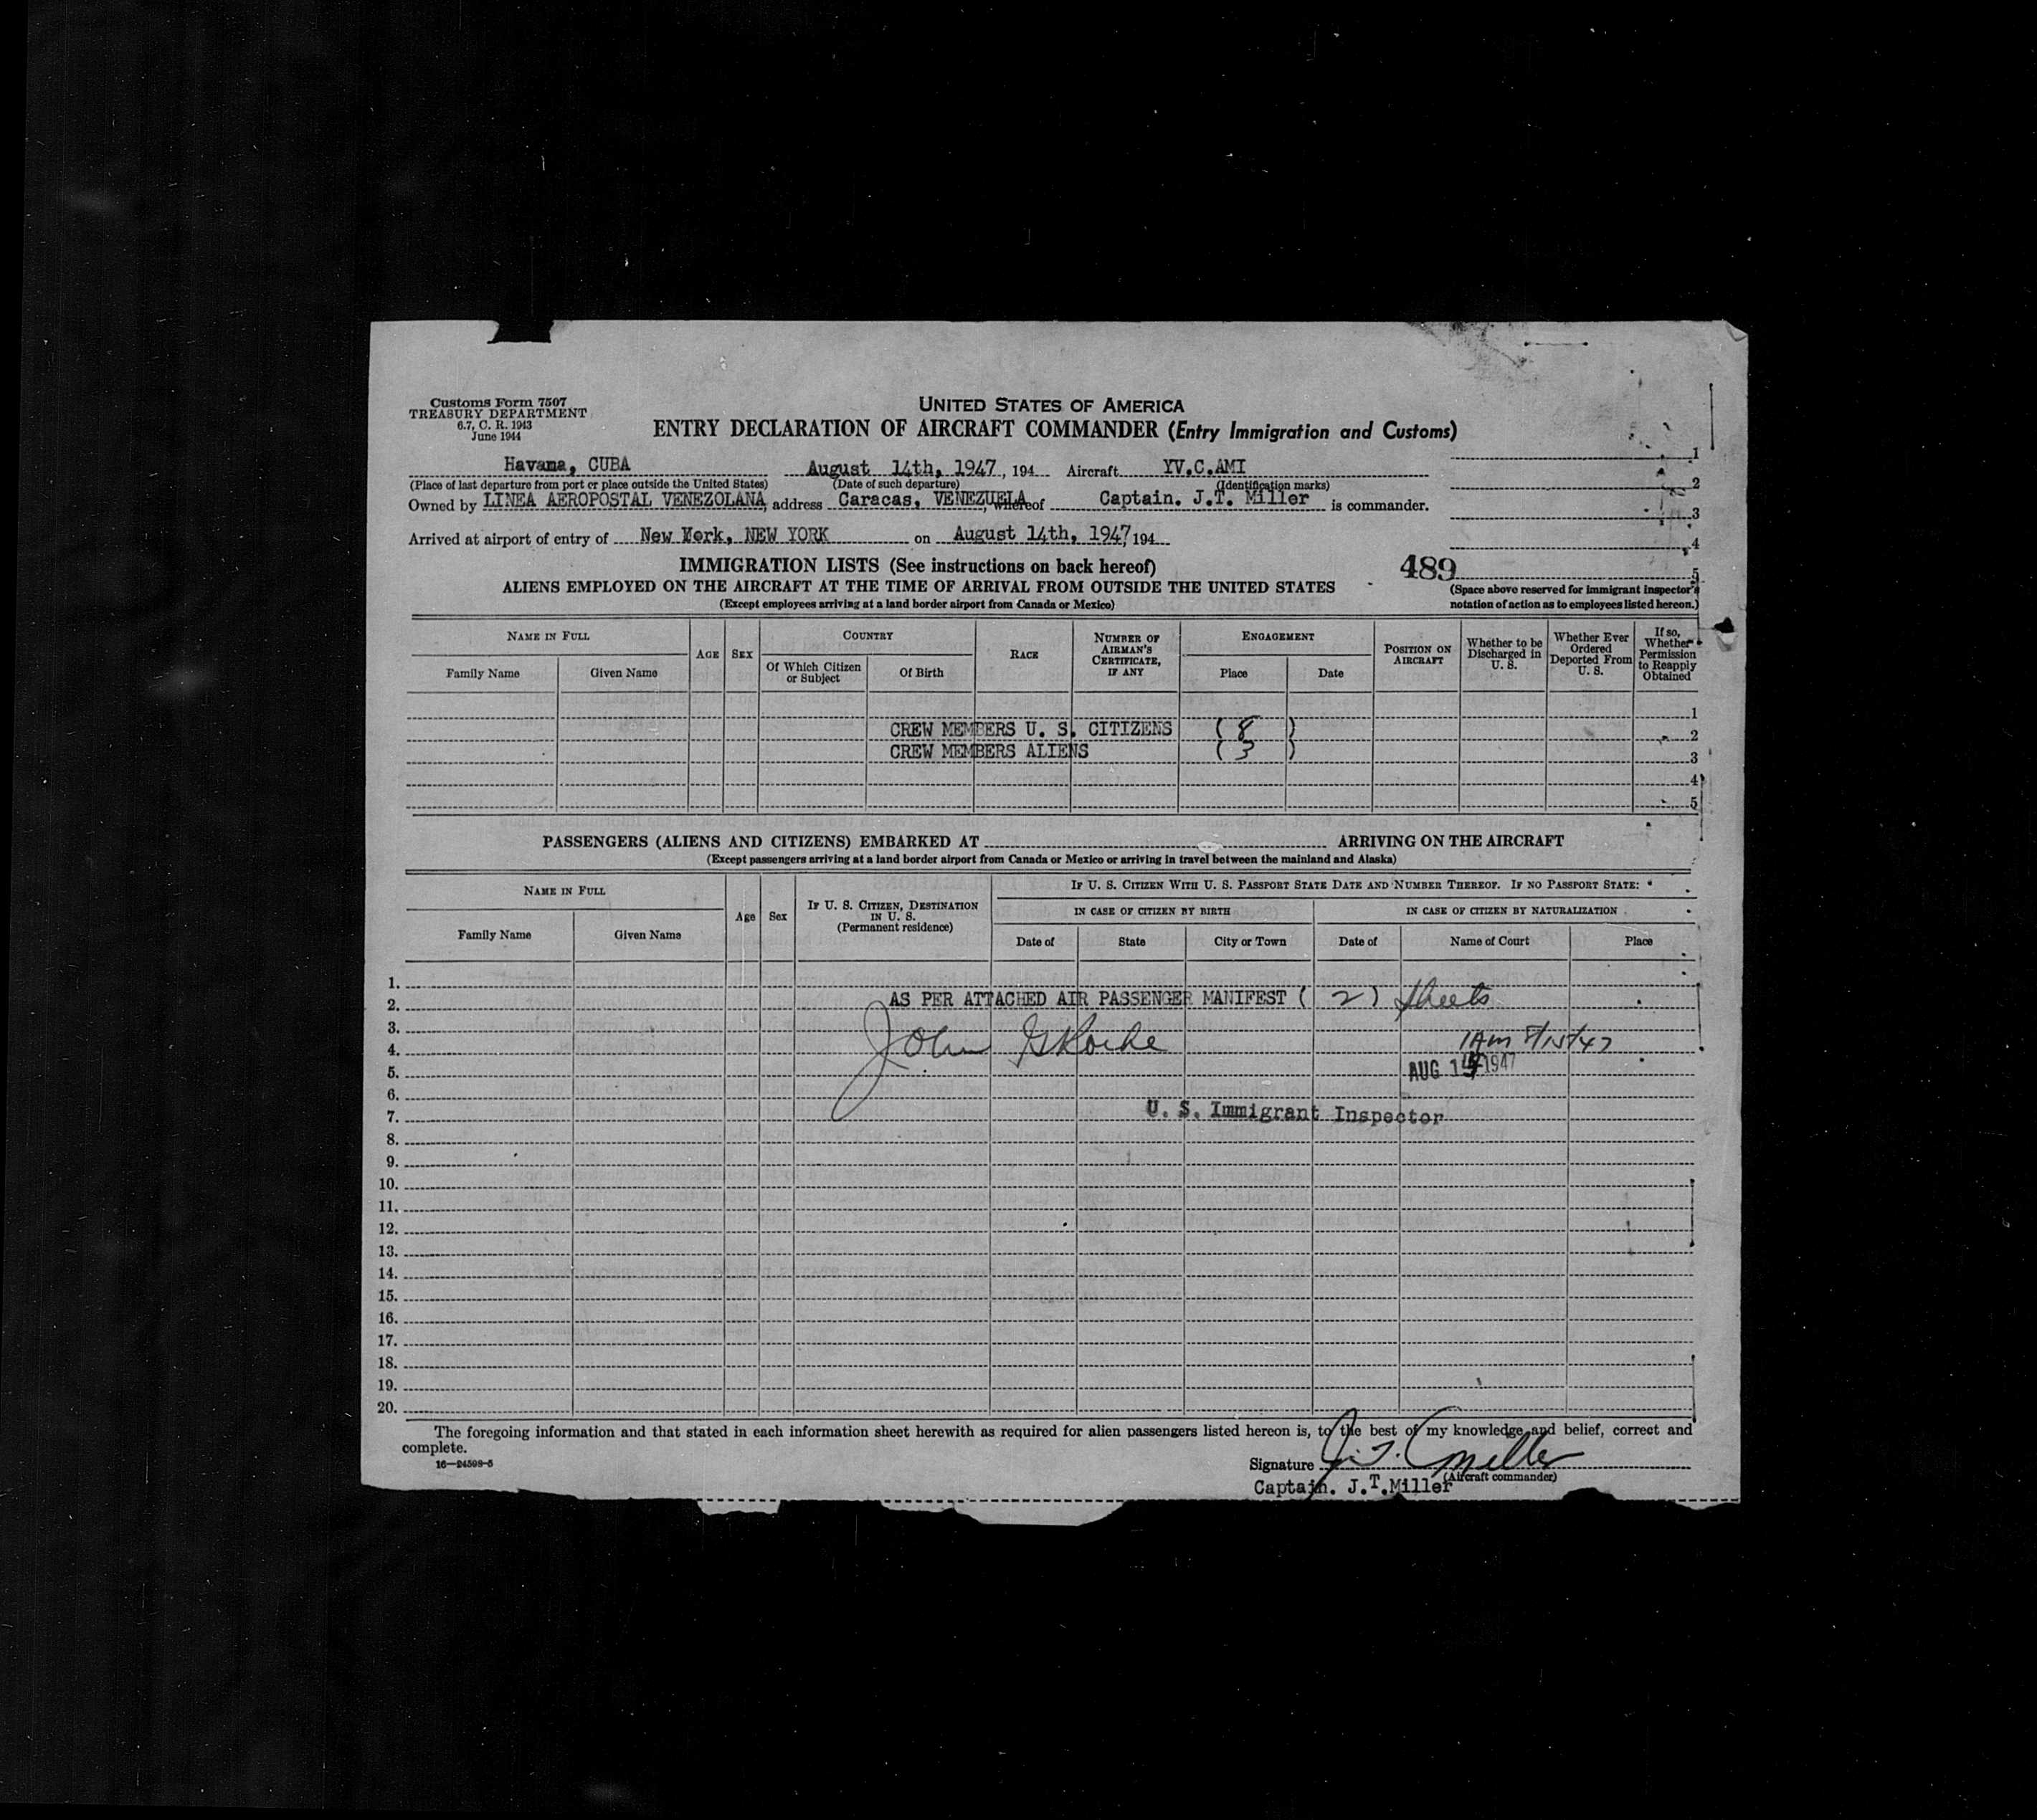 Customs Form 7507
TREASURY DEPARTMENT
6.7, C. R. 1943
June 1944
UNITED STATES OF AMERICA
ENTRY DECLARATION OF AIRCRAFT COMMANDER (Entry Immigration and Customs)
Havana, CUBA August 14th, 1947, 194 Aircraft YV.C.AMI
(Place of last departure from port or place outside the United States) (Date of such departure) (Identification marks)
Owned by LINEA AEROPOSTAL VENEZOLANA, address Caracas, VENEZUELA, whereof Captain. J.T. Miller is commander.
Arrived at airport of entry of New York, NEW YORK on August 14th, 1947, 194
1
2
3
4
5
489
(Space above reserved for immigrant inspector's notation of action as to employees listed hereon.)
IMMIGRATION LISTS (See instructions on back hereof)
ALIENS EMPLOYED ON THE AIRCRAFT AT THE TIME OF ARRIVAL FROM OUTSIDE THE UNITED STATES
(Except employees arriving at a land border airport from Canada or Mexico)
NAME IN FULL
Family Name Given Name
AGE SEX
COUNTRY
Of Which Citizen or Subject Of Birth
RACE
NUMBER OF AIRMAN'S CERTIFICATE, IF ANY
ENGAGEMENT
Place Date
POSITION ON AIRCRAFT
Whether to be Discharged in U. S.
Whether Ever Ordered Deported From U. S.
If so, Whether Permission to Reapply Obtained
1
CREW MEMBERS U. S. CITIZENS ( 8 ) 2
CREW MEMBERS ALIENS ( 3 ) 3
4
5
PASSENGERS (ALIENS AND CITIZENS) EMBARKED AT ARRIVING ON THE AIRCRAFT
(Except passengers arriving at a land border airport from Canada or Mexico or arriving in travel between the mainland and Alaska)
NAME IN FULL
Family Name Given Name
Age Sex
IF U. S. CITIZEN, DESTINATION IN U. S.
(Permanent residence)
IF U. S. CITIZEN WITH U. S. PASSPORT STATE DATE AND NUMBER THEREOF. IF NO PASSPORT STATE:
IN CASE OF CITIZEN BY BIRTH IN CASE OF CITIZEN BY NATURALIZATION
Date of State City or Town Date of Name of Court Place
1.
2. AS PER ATTACHED AIR PASSENGER MANIFEST ( 2 ) sheets
3.
4. John 1 AM 8/15/47
5. AUG 15 1947
6.
7. U. S. Immigrant Inspector
8.
9.
10.
11.
12.
13.
14.
15.
16.
17.
18.
19.
20.
The foregoing information and that stated in each information sheet herewith as required for alien passengers listed hereon is, to the best of my knowledge and belief, correct and
complete.
16—24598-5
Signature J. T. Miller
(Aircraft commander)
Captain. J.T.Miller